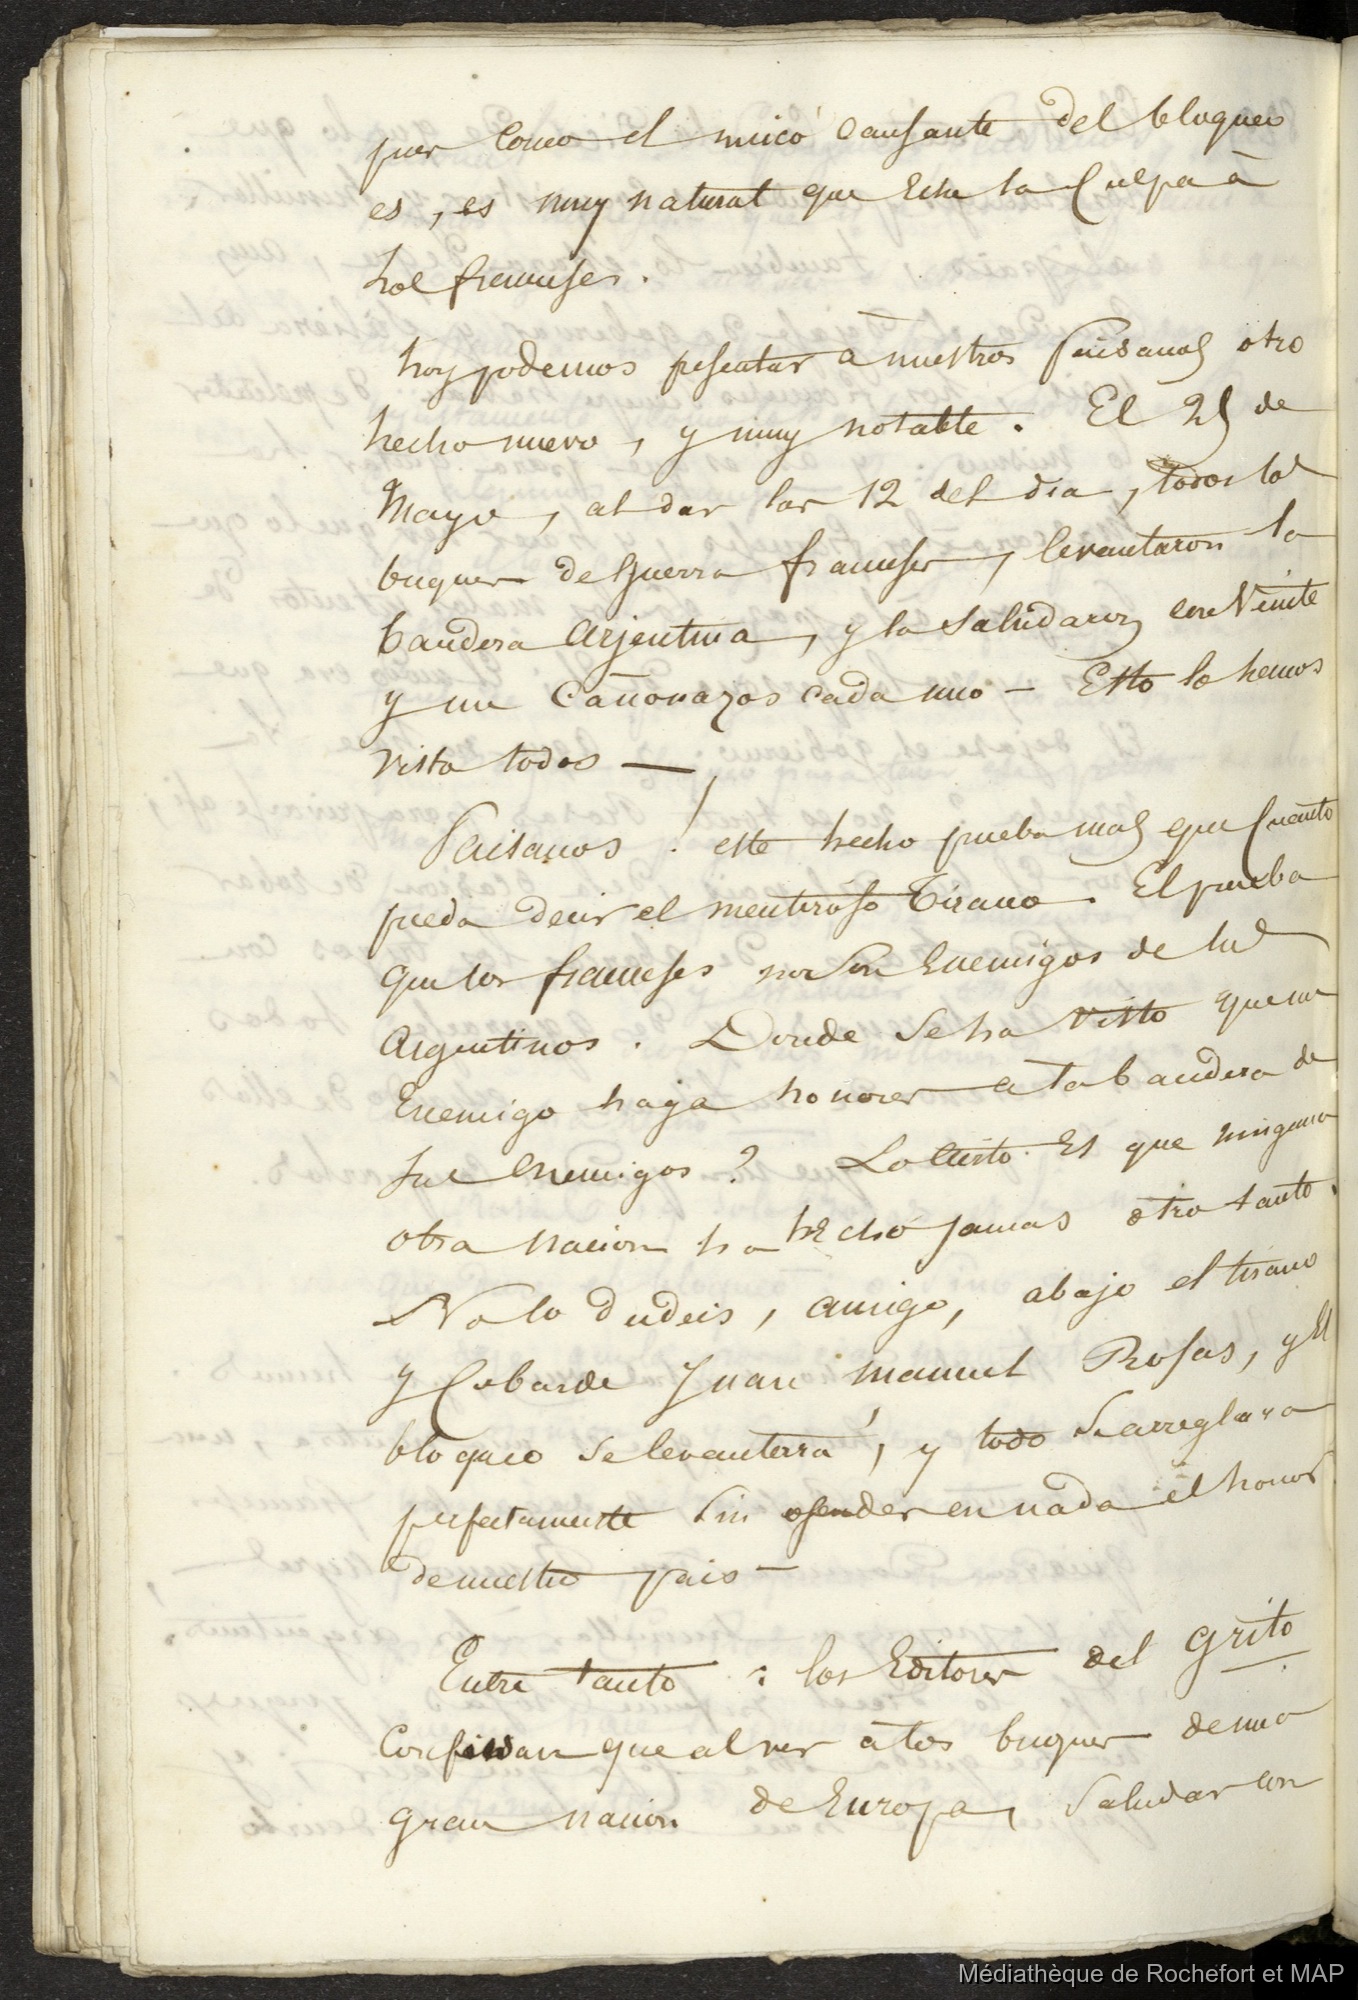 pues como el unico causante del bloqueo
es, es muy natural que Eche la Culpa à
los franceses.
hoy podemos presentar à nuestros Paisanos otro
hecho nuevo, y muy notable. El 25 de
Mayo, al dar las 12 del dia, todos los
buques de guerra franceses, levantaron la
bandera Arjentina, y la Saludaron con Veinte
y un Cañonazos cada uno — Esto lo hemos
visto todos —
Paisanos ! este hecho prueba mas que Cuanto
pueda decir el mentiroso Tirano. El prueba
que los franceses no Son Enemigos de los
Argentinos. Donde Se ha visto que un
Enemigo haga honores a la bandera de
sus Enemigos ? Lo Cierto Es que ninguna
otra nacion ha hecho jamas otro tanto.
No lo dudeis, amigo, abajo el tirano
y Cobarde Juan manuel Rosas, y El
bloqueo se levanterrá, y todo Se arreglara
perfectamente Sin ofender en nada el honor
de nuestro pais —
Entre tanto : los Editores del Grito
Confiesan que al ver à los buques de una
gran nacion de Europa, Saludar con
Médiathèque de Rochefort et MAP